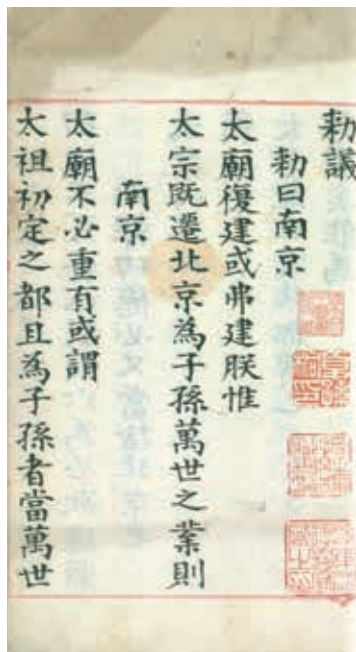 勑議
勑曰南京
太廟復建或弗建朕惟
太宗既遷北京為子孫萬世之業則
南京
太廟不必重有或謂
太祖初定之都且為子孫者當萬世